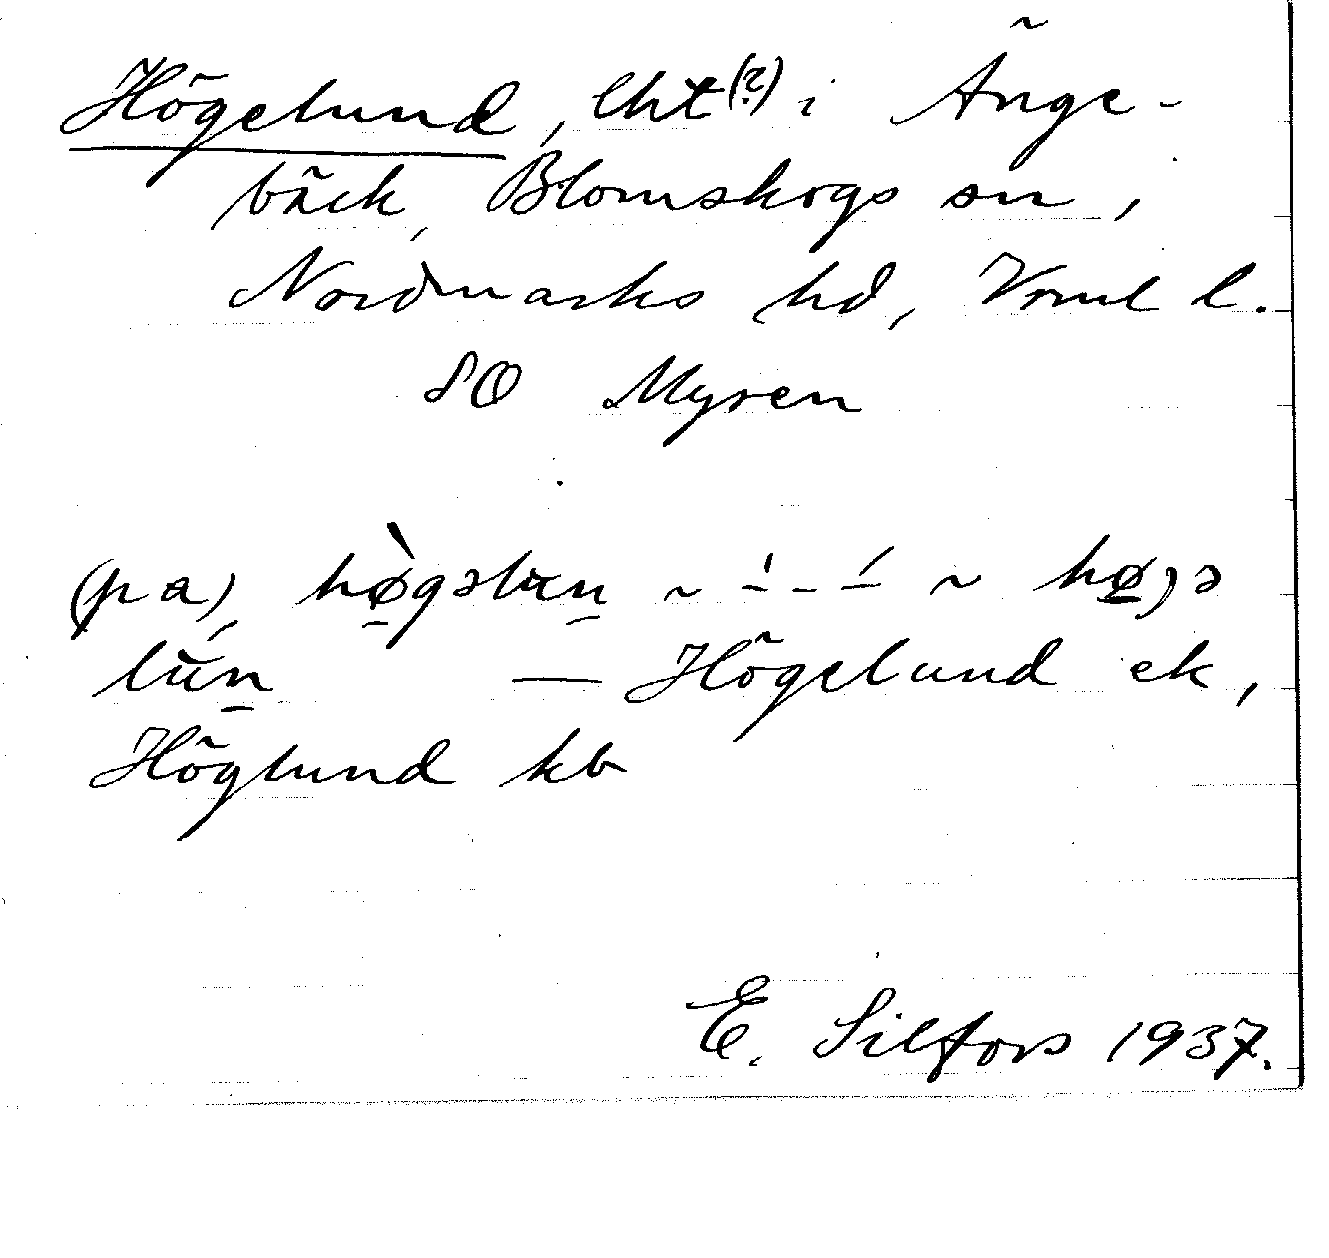 Högelund, lht(?) i Änge-
bäck, Blomskogs sn,
Nordmarks hd, Vrml l.
SO Myren
(pa) hø̀gəlun ~ -́ - -́ ~ høgə
lún — Högelund ek,
Höglund kb
E. Silfors 1937.